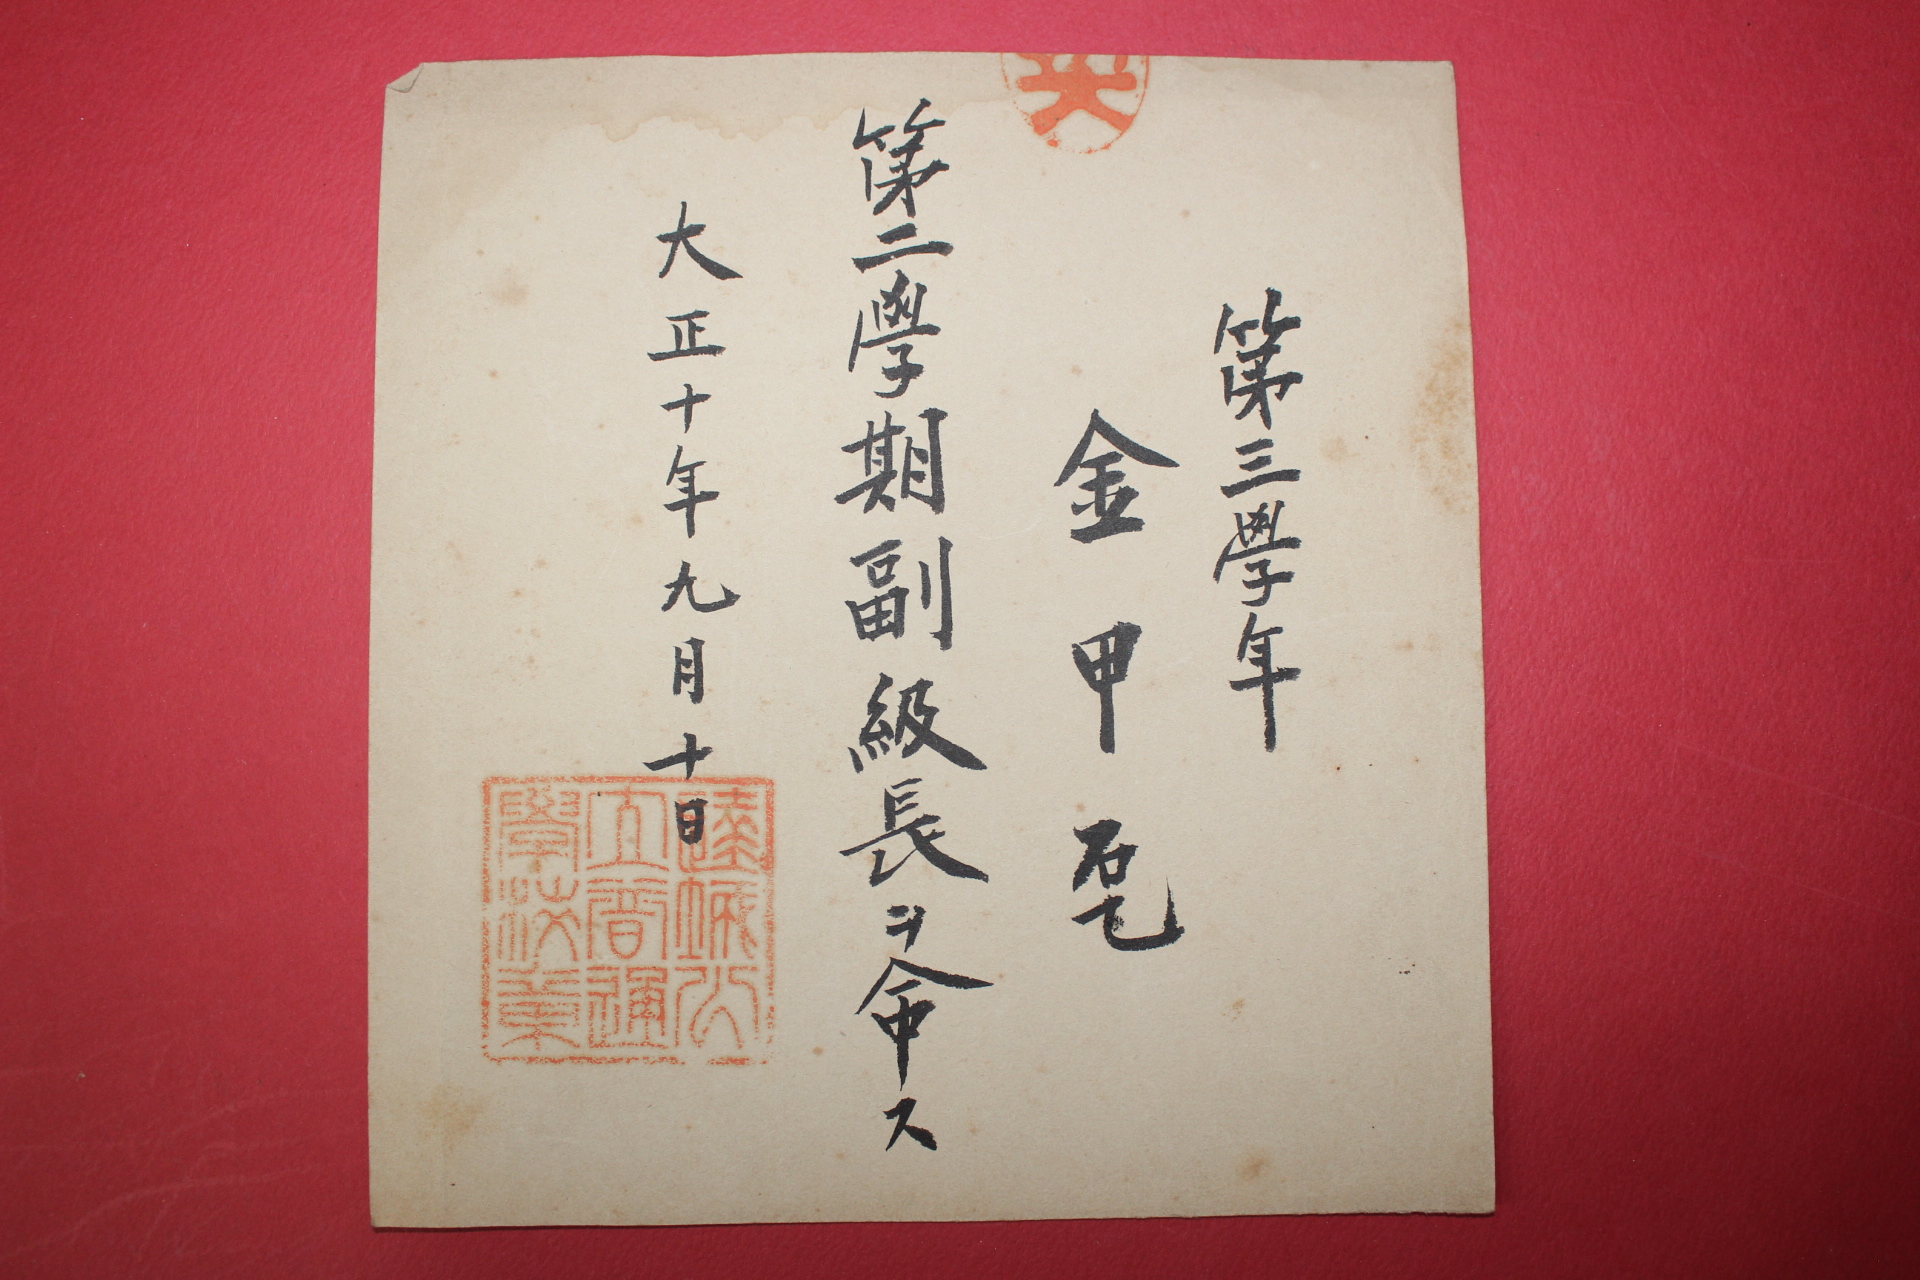 第三學年
金甲乭
第二學期副級長ヲ命ス
大正十年九月十日
達城公
立普通
學校章